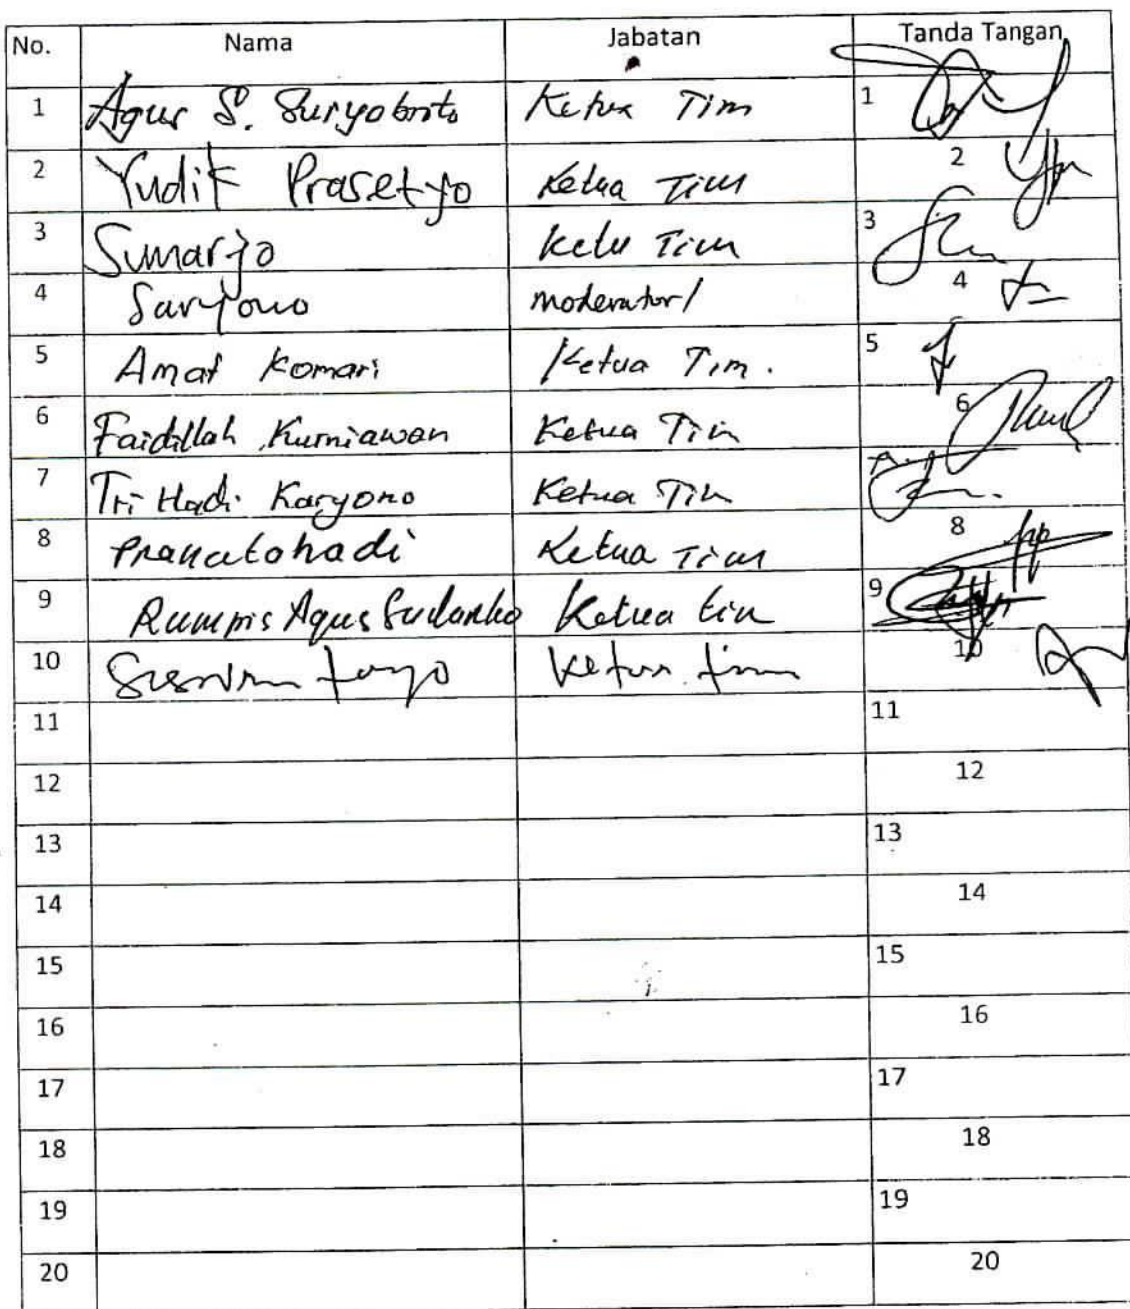 No. Nama Jabatan Tanda Tangan
1 Agus S. Suryobroto Ketua Tim 1
2 Yudik Prasetyo Ketua Tim 2
3 Sumarjo Ketu Tim 3
4 Saryono moderator/ 4
5 Amat Komari Ketua Tim. 5
6 Faidillah Kurniawan Ketua Tim 6
7 Tri Hadi Karyono Ketua Tim
8 Pranatahadi Ketua Tim 8
9 Rumpis Agus Sudarko Ketua tim 9
10 Ketua tim 10
11 11
12 12
13 13
14 14
15 15
16 16
17 17
18 18
19 19
20 20